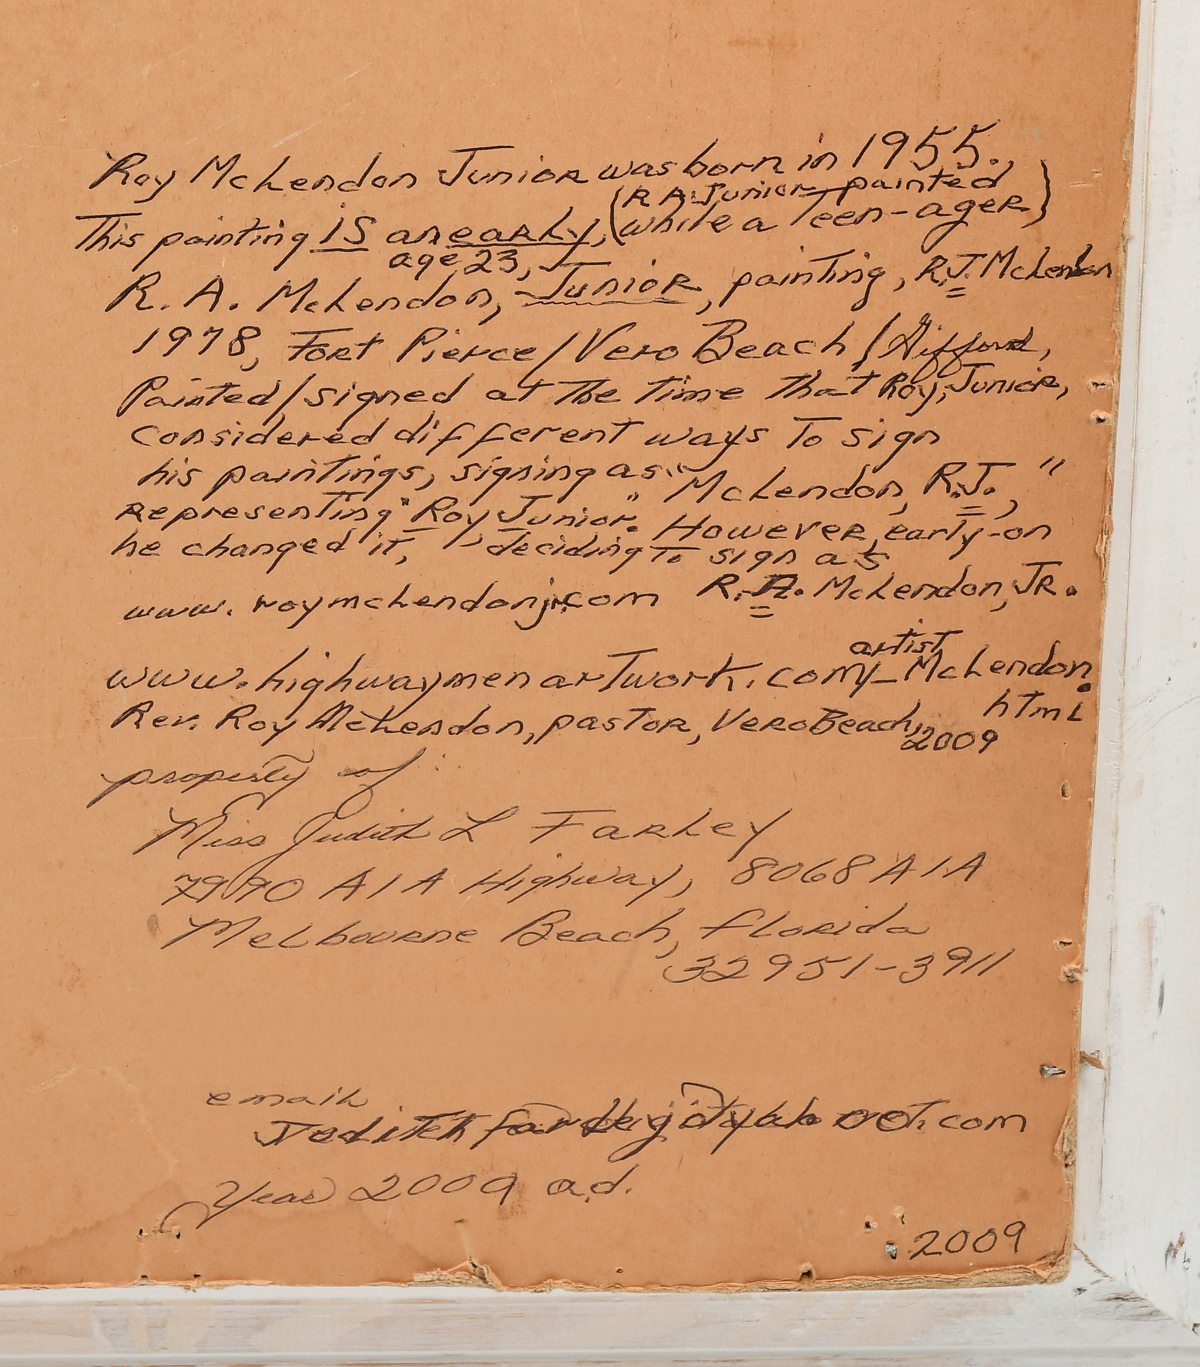 Roy McLendon Junior was born in 1955.
This painting IS an early, (R A. Junior painted
while a Teen-ager)
age 23,
R. A. McLendon, Junior, painting, R.J. McLendon
1978, Fort Pierce/Vero Beach/Gifford,
Painted/signed at the time that Roy, Junior,
considered different ways to sign
his paintings, signing as "McLendon, R.J.,"
representing "Roy Junior." However, early-on
he changed it, deciding to sign as
R. A. McLendon, JR.
www.roymclendonjr.com
www.highwaymenartwork.com/_artist McLendon.
html
Rev. Roy McLendon, pastor, Vero Beach,
2009
property of
Miss Judith L Farley
7990 A1A Highway, 8068 A1A
Melbourne Beach, Florida
32951-3911
email
Year 2009 a.d.
2009